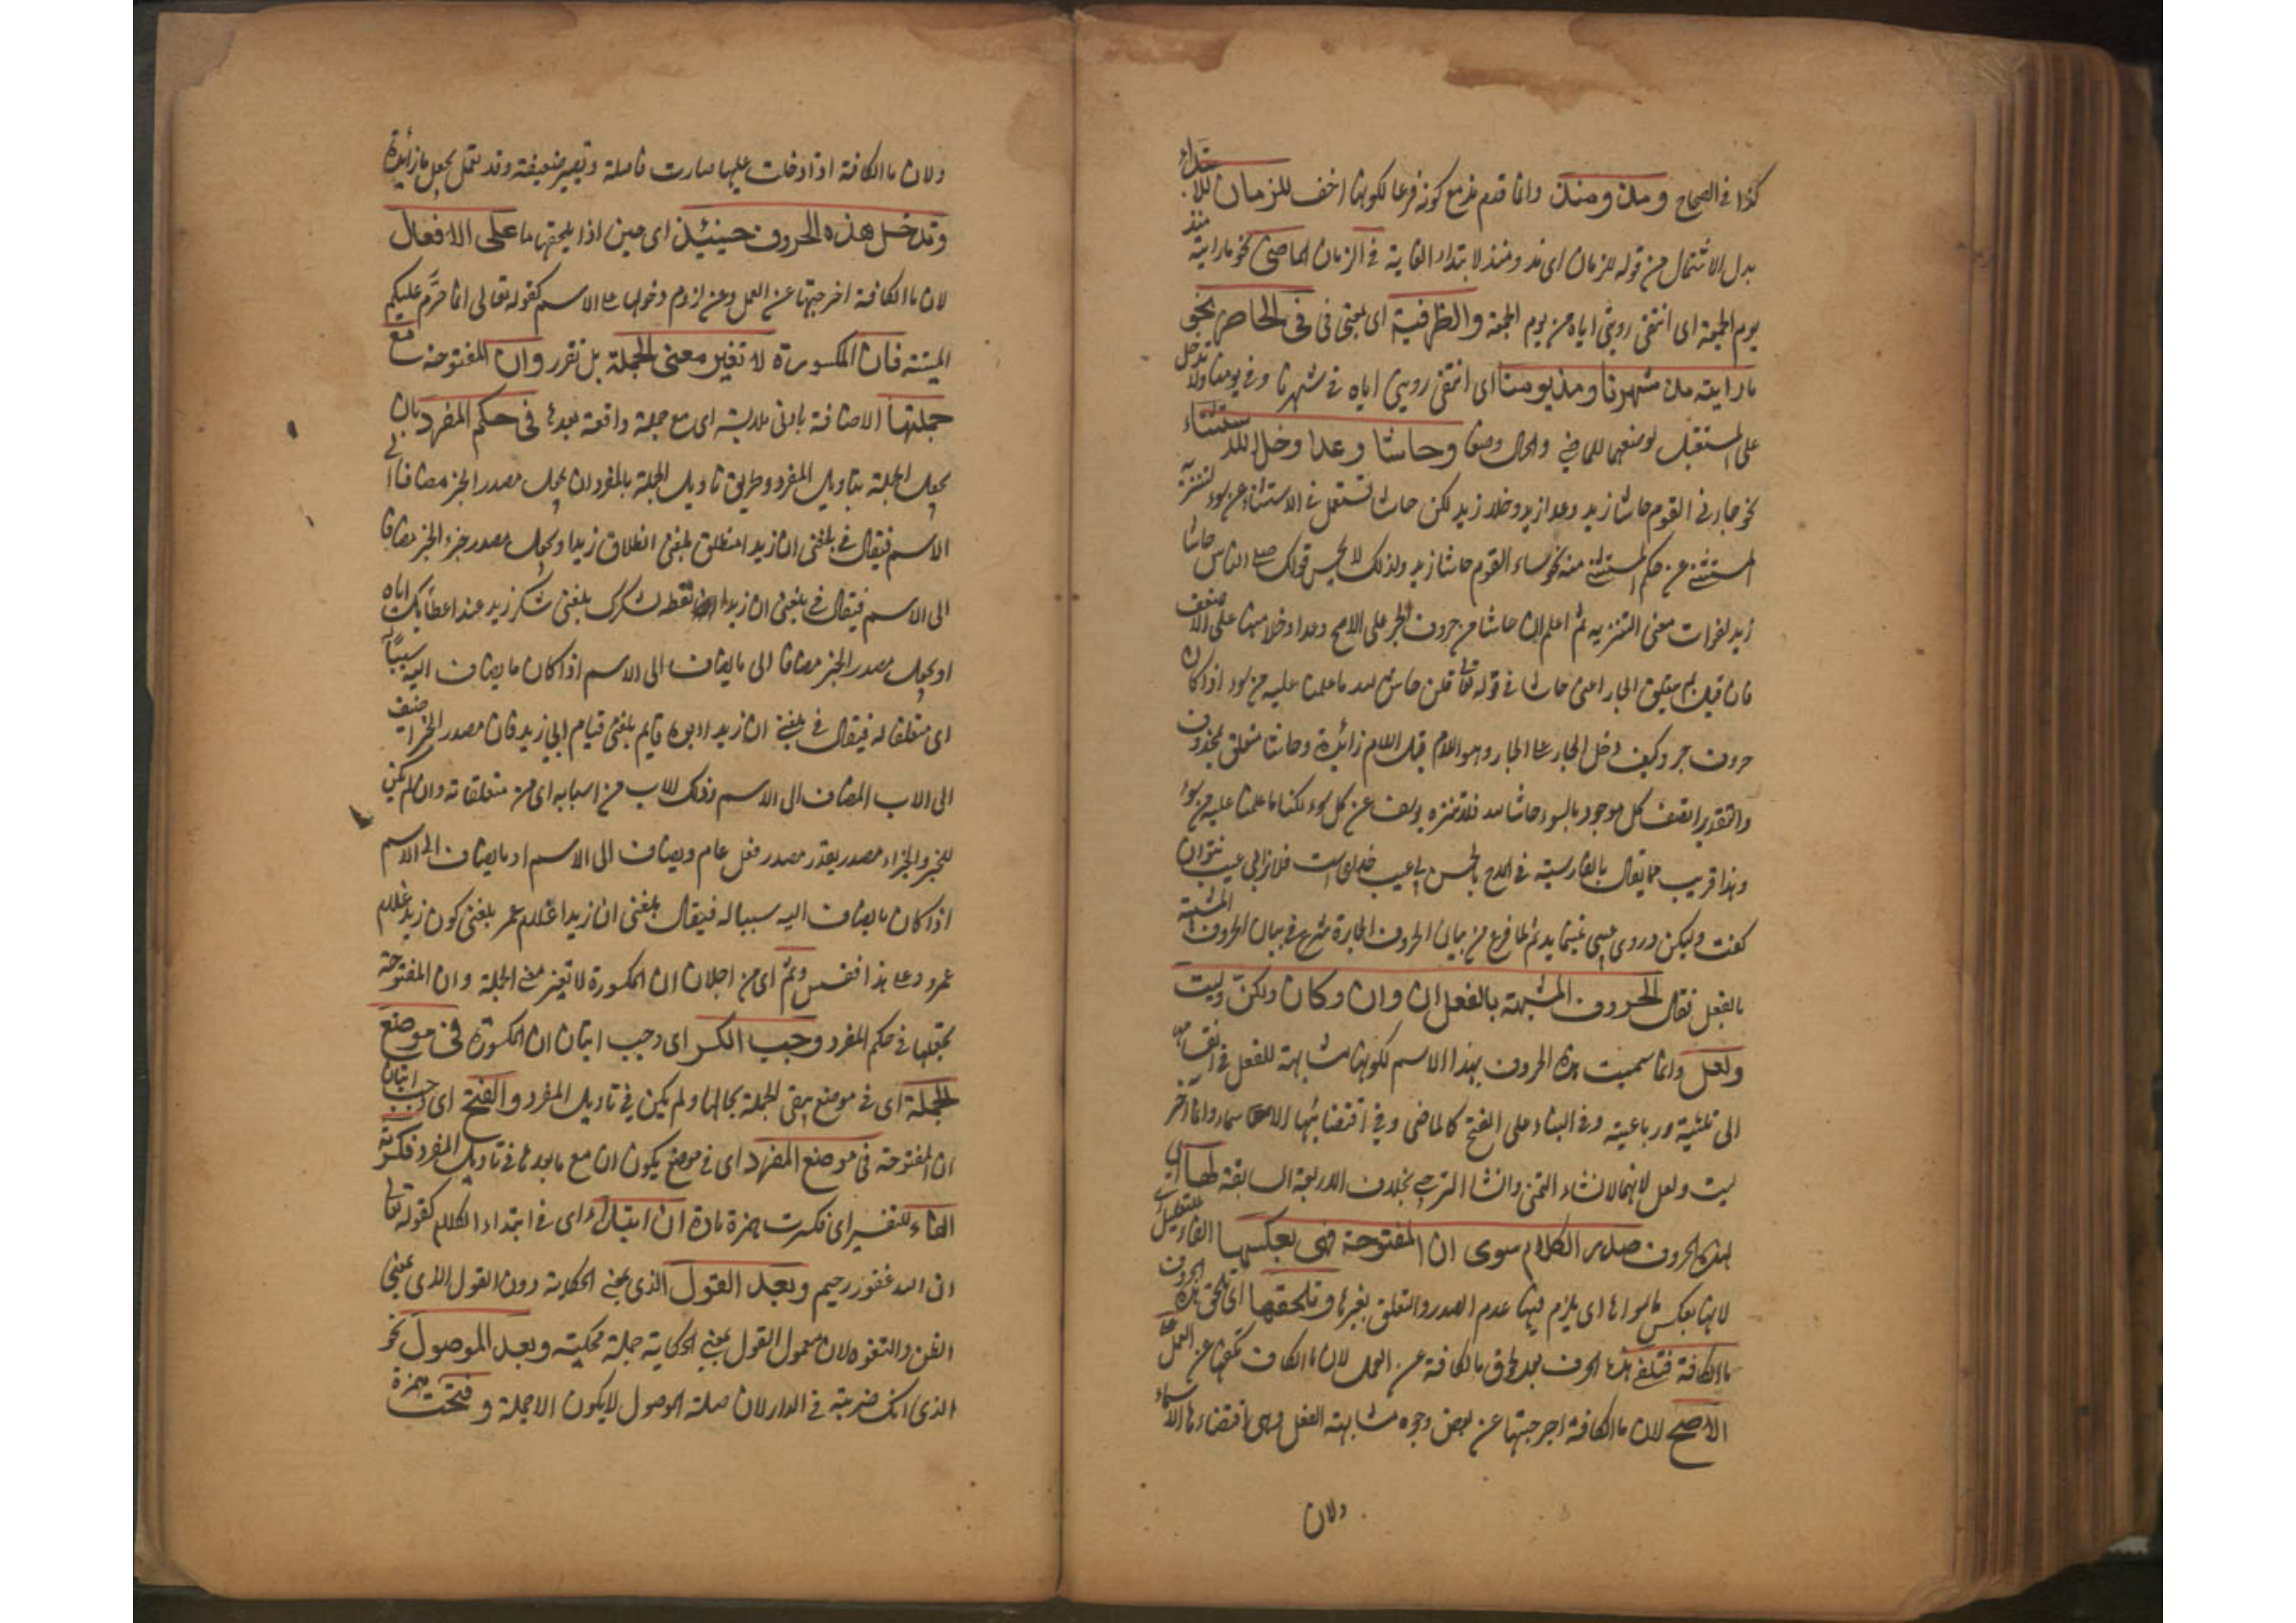 كذا في الصحاح ومذ ومنذ وانما قدم مذ مع كونه فرعا لكونها اخف للزمان للابتداء
بدل الاشتمال من قوله للزمان اى مذ ومنذ لابتداء الغاية في الزمان الماضى نحو ما رايته منذ
يوم الجمعة اى انتفى رويتى اياه من يوم الجمعة والظرفية اى بمعنى فى فى الحاضر نحو
ما رايته مذ شهرنا ومذ يومنا اى انتفى رويتى اياه في شهرنا وفي يومنا ولا تدخل
على المستقبل لوضعهما للماضي والحال وضعا وحاشا وعدا وخلا للاستثناء
نحو جاءني القوم حاشا زيد وعدا زيد وخلا زيد لكن حاشا تستعمل في الاستثناء عن سوء لتنزيه
المستثنى عن حكم المستثنى منه نحو ساء القوم حاشا زيد ولذلك لا يحسن قولك صلى الناس حاشا
زيد لفوات معنى التنزيه ثم اعلم ان حاشا من حروف الجر على الاصح وعدا وخلا منها على الاضعف
فان قيل بم يتعلق الجار اعنى حاشا في قوله تعالى قلن حاش لله ما علمنا عليه من سوء اذ كان
حروف جر وكيف دخل الجار على الجار وهو اللام قيل اللام زائدة وحاشا متعلق بمحذوف
والتقدير اتصف كل موجود بالسوء حاشا لله فلا تنزه يوسف عن كل سوء لكنا ما علمنا عليه من سوء
وهذا قريب مما يقال بالفارسية في المدح بالحسن بى عيب خداى است فلانرا بى عيب نتوان
كفت وليكن در وى عيبى نميبايد ثم لما فرغ من بيان الحروف الجارة شرع في بيان الحروف المشبهة
بالفعل فقال الحروف المشبهة بالفعل ان وان وكان ولكن وليت
ولعل وانما سميت هذه الحروف بهذا الاسم لكونها مشابهة للفعل في انقسامها
الى ثلاثية ورباعية وفي البناء على الفتح كالماضى وفي اقتضائها الاسماء وانما اخر
ليت ولعل لانهما لانشاء التمنى وانشا الترجى بخلاف الاربعة السابقة لها اى
لهذه الحروف صدر الكلام سوى ان المفتوحة فهى بعكسها الفاء للتعليل
لانها بعكس ما سواها اى يلزم فيها عدم الصدر والتعلق بغيرها وتلحقها اى تلحق هذه الحروف
ما الكافة فتلغى هذه الحروف بعد لحوق ما الكافة عن العمل لان ما الكافة تكفها عن العمل على
الاصح لان ما الكافة اخرجتها عن بعض وجوه مشابهة الفعل وهى اقتضاءها الاسماء
ولان
ولان ما الكافة اذا دخلت عليها صارت فاصلة وتصير ضعيفة وقد تعمل بجعل ما زائدة
وتدخل هذه الحروف حينئذ اى حين اذ يلحقها ما على الافعال
لان ما الكافة اخرجتها عن العمل وعن لزوم دخولها على الاسم كقوله تعالى انما حرم عليكم
الميتة فان المكسورة لا تغير معنى الجملة بل تقرر وان المفتوحة مع
جملتها الاضافة بادنى ملابسة اى مع جملة واقعة بعدها فى حكم المفرد بان
يجعل الجملة بتاويل المفرد وطريق تاويل الجملة بالمفرد ان يجعل مصدر الخبر مضافا الى
الاسم فيقال في بلغنى ان زيدا منطلق بلغنى انطلاق زيد او يجعل مصدر جزء الخبر مضافا
الى الاسم فيقال في بلغنى ان زيدا ان تعطه لشكرك بلغنى شكر زيد عند اعطائك اياه
او يجعل مصدر الخبر مضافا الى ما يضاف الى الاسم اذا كان ما يضاف اليه سببا له
اى متعلقا له فيقال في بلغنى ان زيدا ابوه قايم بلغنى قيام ابى زيد فان مصدر الخبر اضيف
الى الاب المضاف الى الاسم وذلك للاب من اسبابه اى من متعلقاته وان لم يكن
للخبر والجزاء مصدر يقدر مصدر فعل عام ويضاف الى الاسم او ما يضاف الى الاسم
اذا كان ما يضاف اليه سببا له فيقال بلغنى ان زيدا غلام عمر بلغنى كون زيد غلام
عمرو وعلى هذا فقس وثم اى من اجل ان ان المكسورة لا تغير معنى الجملة وان المفتوحة
تجعلها في حكم المفرد وجب الكسر اى وجب اتيان ان المكسورة فى موضع
الجملة اى في موضع يبقى الجملة بحالها ولم يكن في تاويل المفرد والفتح اى وجب اتيان
ان المفتوحة فى موضع المفرد اى في موضع يكون ان مع ما بعدها في تاويل المفرد فكسرت
الفاء للتفسير اى فكسرت همزة مادة ان ابتداء اى في ابتداء الكلام كقوله تعالى
ان الله غفور رحيم وبعد القول الذى بمعنى الحكاية دون القول الذى بمعنى
الظن والتفوه لان معمول القول بمعنى الحكاية جملة محكية وبعد الموصول نحو
الذى انك ضربته في الدار لان صلة الموصول لا يكون الا جملة وفتحت همزة